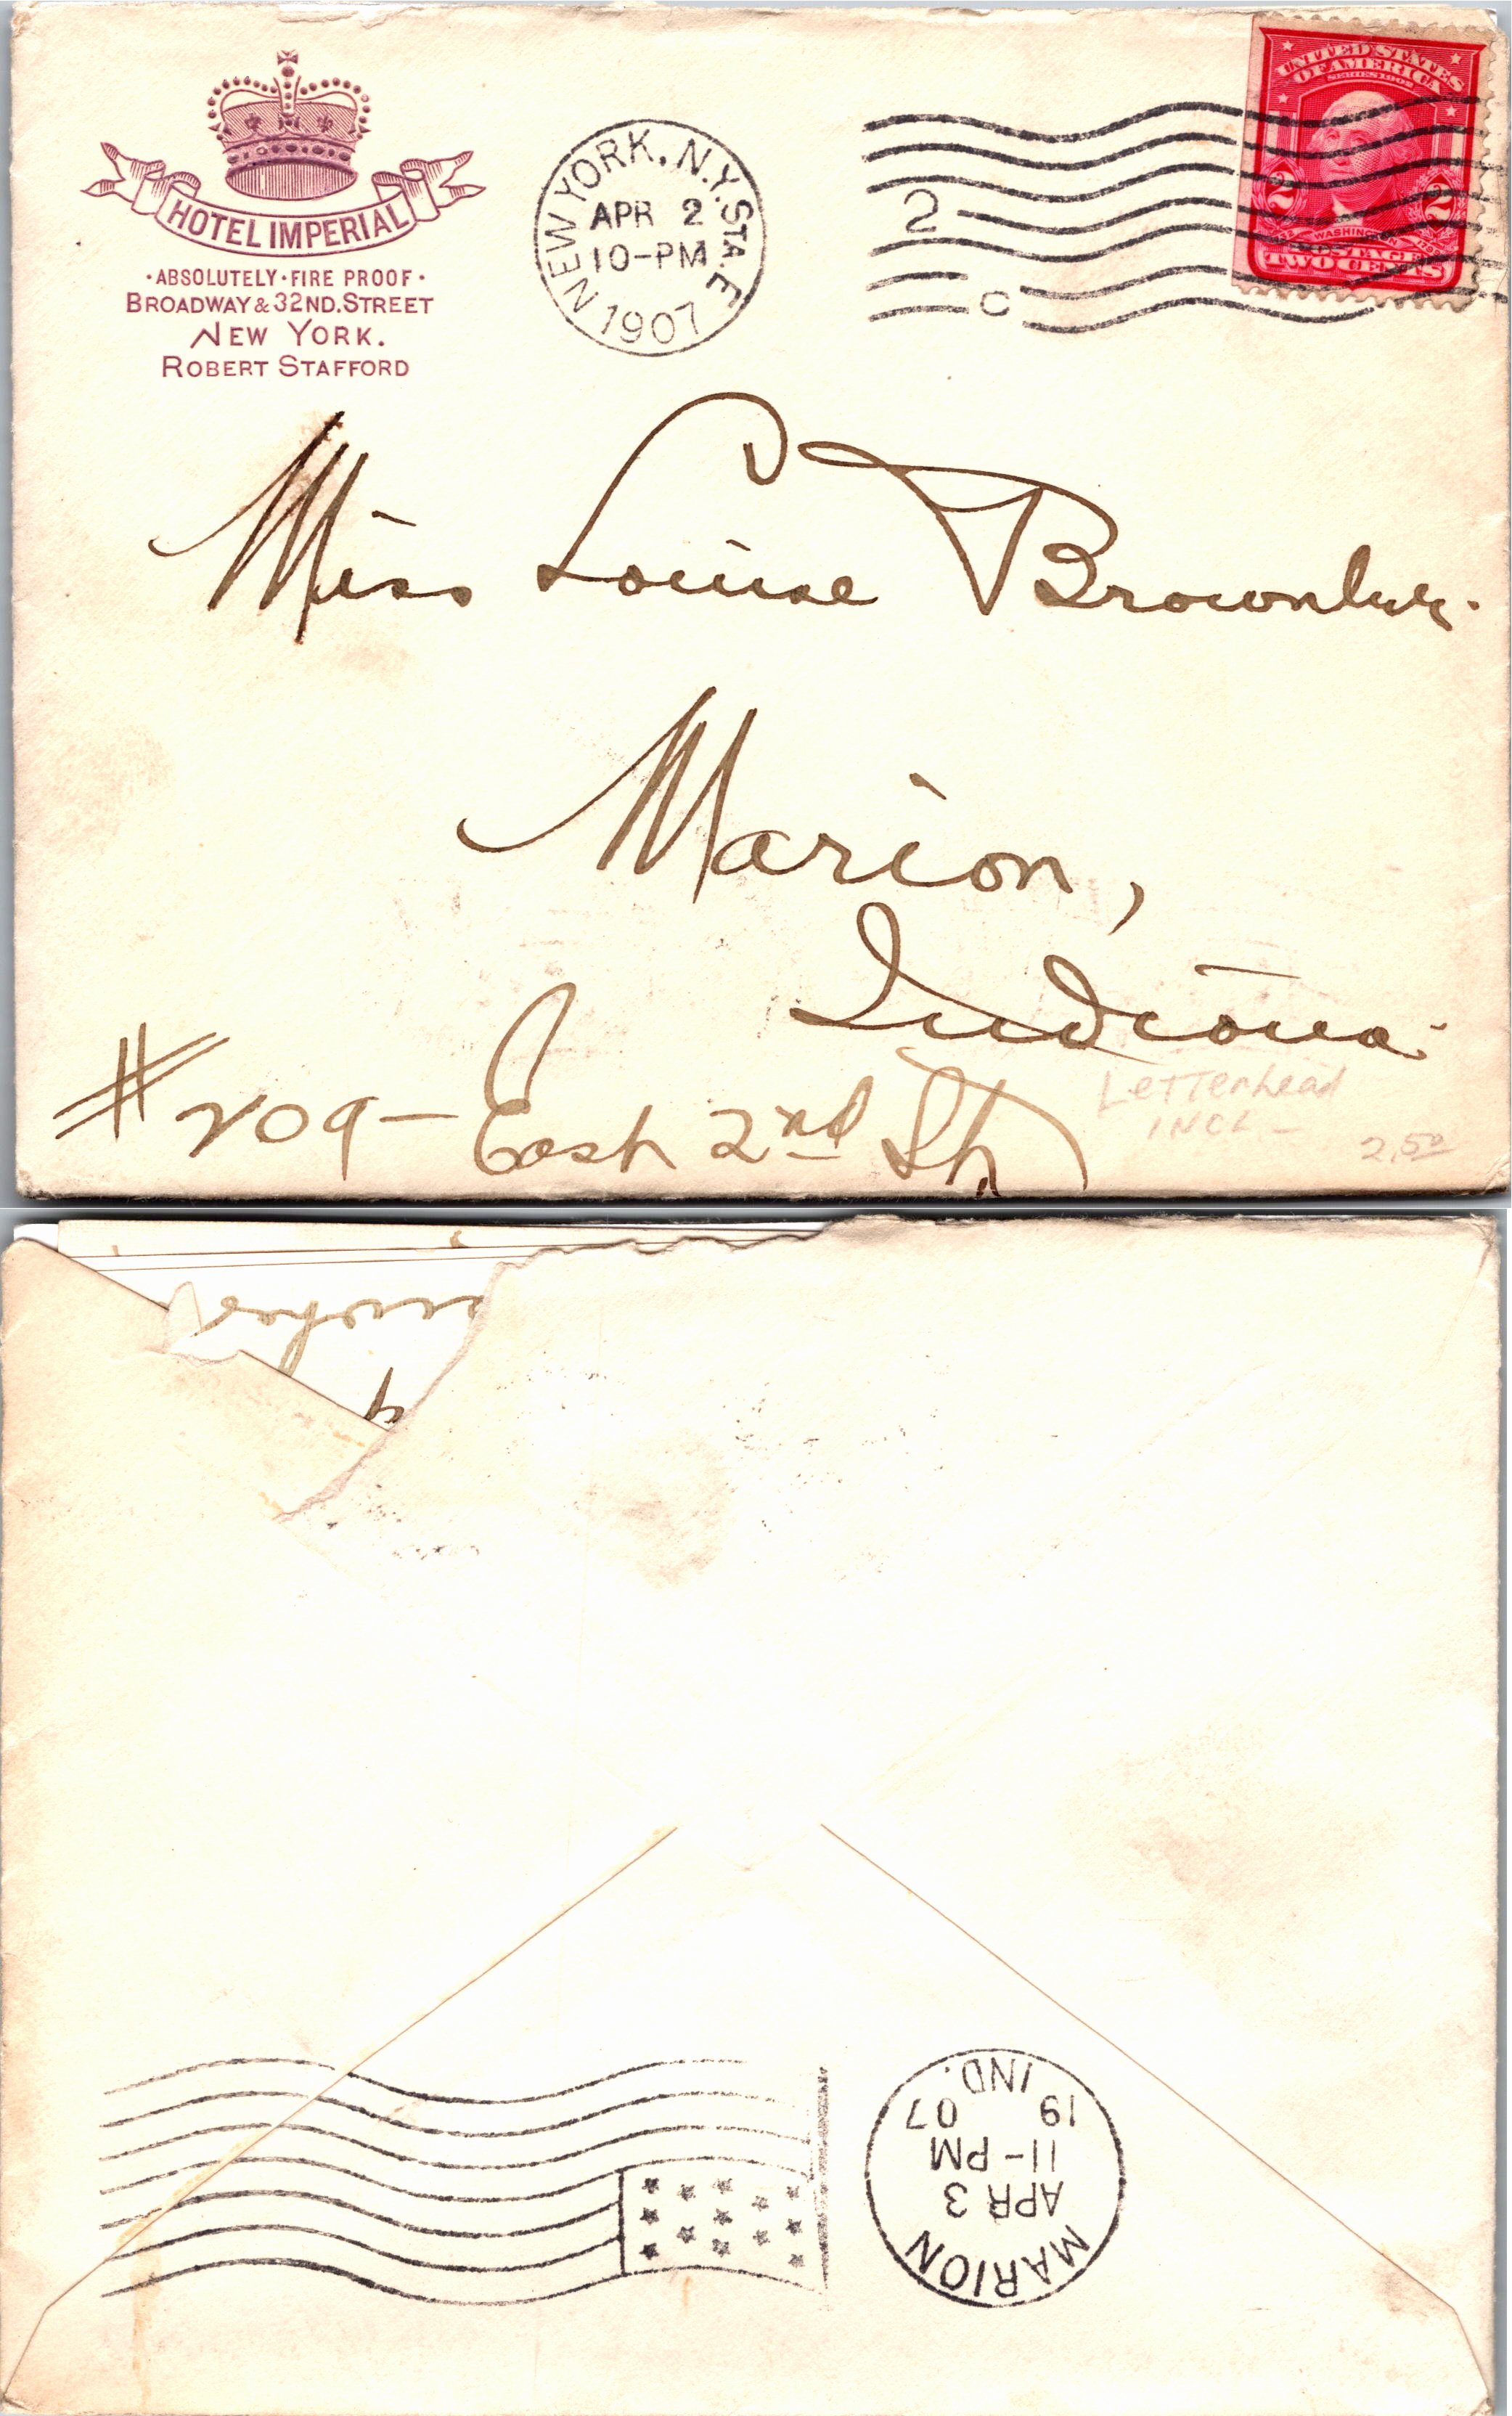 HOTEL IMPERIAL
·ABSOLUTELY·FIRE PROOF·
BROADWAY & 32ND. STREET
NEW YORK.
ROBERT STAFFORD
NEW YORK, N.Y. STA. E
APR 2
10-PM
1907
2
C
UNITED STATES
OF AMERICA
SERIES 1902
2 2
WASHINGTON
POSTAGE
TWO CENTS
Miss Louise
Marion,
Indiana.
#209- East 2nd St,
Letterhead
INCL -
2.50
MARION
APR 3
11-PM
19 07
IND.